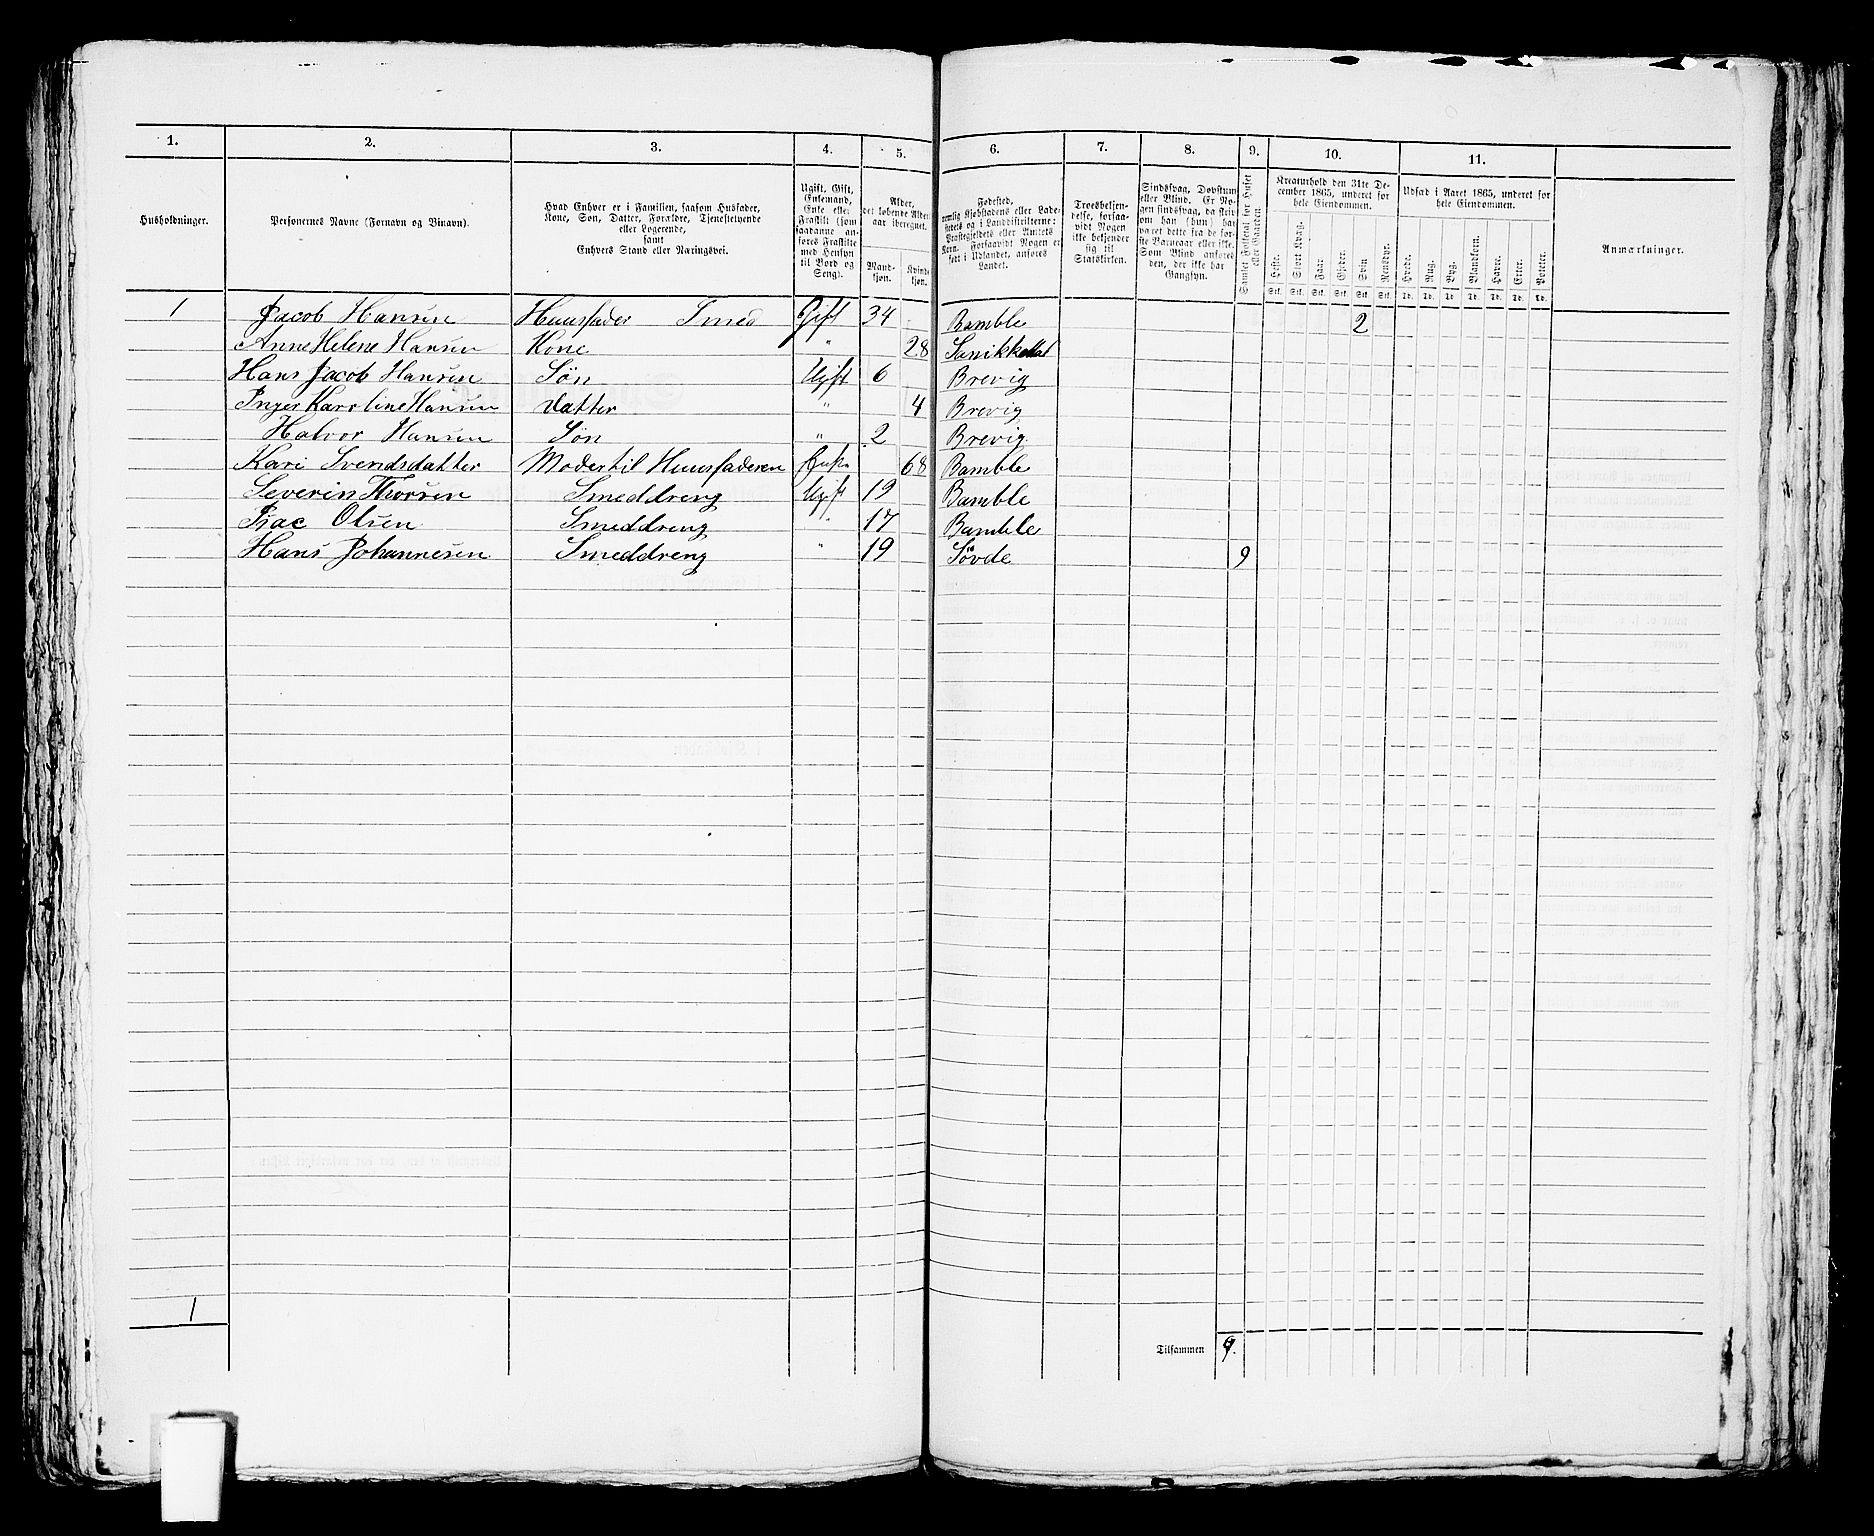 1. 2. 3. 4. 5. 6. 7. 8. 9. 10. 11.
Husholdninger.
Personernes Navne (Fornavn og Binavn).
Hvad Enhver er i Familien, saasom Husfader,
Kone, Søn, Datter, Forældre, Tjenestetyende
eller Logerende,
samt
Enhvers Stand eller Næringsvei.
Ugift, Gift,
Enkemand,
Enke eller
Fraskilt (som
saadanne an-
føres Fraskilte
med Hensyn
til Bord og
Seng).
Alder,
det løbende Alders-
aar iberegnet.
Mand-
kjøn.
Kvinde-
kjøn.
Fødested,
nemlig Kjøbstadens eller Lade-
stedets og i Landdistrikterne:
Præstegjeldets eller Amtets
Navn. Forsaavidt Nogen er
født i Udlandet, anføres
Landet.
Troesbekjen-
delse, forsaa-
vidt Nogen
ikke bekjender
sig til
Statskirken.
Sindssvag, Døvstum
eller Blind. Er No-
gen sindssvag, da skriv
om han (hun) har
været dette fra de før-
ste Barneaar eller ikke.
Som Blind anføres
den, der ikke har
Gangsyn.
Samlet Folketal for Huset
eller Gaarden.
Kreaturhold den 31te De-
cember 1865, underet for
hele Eiendommen.
Heste. Stort Kvæg. Faar. Gjeder. Svin Rensdyr.
Stk. Stk. Stk. Stk. Stk. Stk.
Udsæd i Aaret 1865, underet for
hele Eiendommen.
Hvede. Rug. Byg. Blandkorn. Havre. Erter. Poteter.
Td. Td. Td. Td. Td. Td. Td.
Anmærkninger.
1 Jacob Hansen Huusfader Smed Gift 34 Bamble 2
Anne Helene Hansen Kone " 28 Sanikkedal
Hans Jacob Hansen Søn Ugift 6 Brevig
Inger Karoline Hansen Datter " 4 Brevig
Halvor Hansen Søn " 2 Brevig
Kari Svendsdatter Moder til Huusfaderen Enke 68 Bamble
Severin Thorsen Smeddreng Ugift 19 Bamble
Isac Olsen Smeddreng " 17 Bamble
Hans Johannesen Smeddreng " 19 Søvde 9
1
Tilsammen 9.